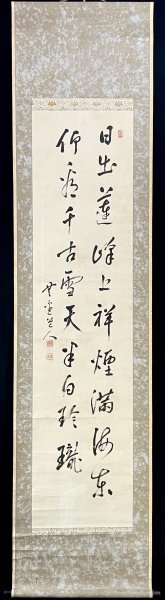 日出蓮峰上祥煙滿海東
仰看千古雪天半白玲瓏